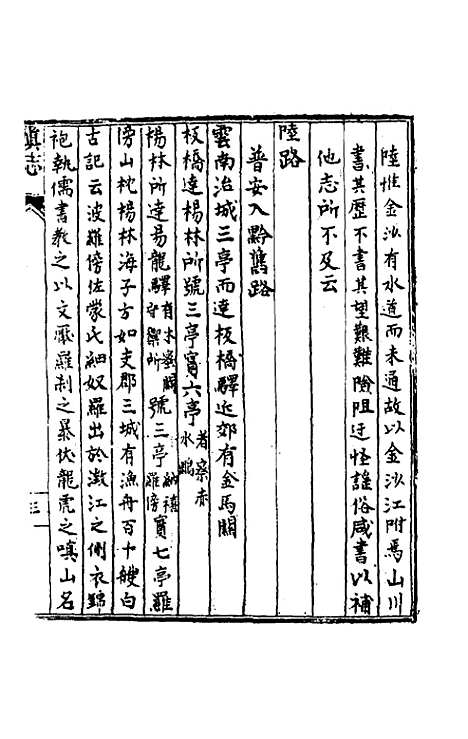 陸惟金沙有水道而未通故以金沙江附焉山川
書其歷不書其望艱難險阻迂怪謠俗咸書以補
他志所不及云
陸路
普安入黔舊路
雲南治城三亭而達板橋驛近郊有金馬關
板橋達楊林所號三亭實六亭者察赤水鵬
楊林所達易龍驛有木密關守禦所號三亭納禧羅傍實七亭羅
傍山枕楊林海子方如支郡三城有漁舟百十艘白
古記云波羅傍佐蒙氏細奴羅出於澂江之側衣錦
袍執儒書教之以文壓羅刹之暴伏龍虎之嗔山名
滇志
三